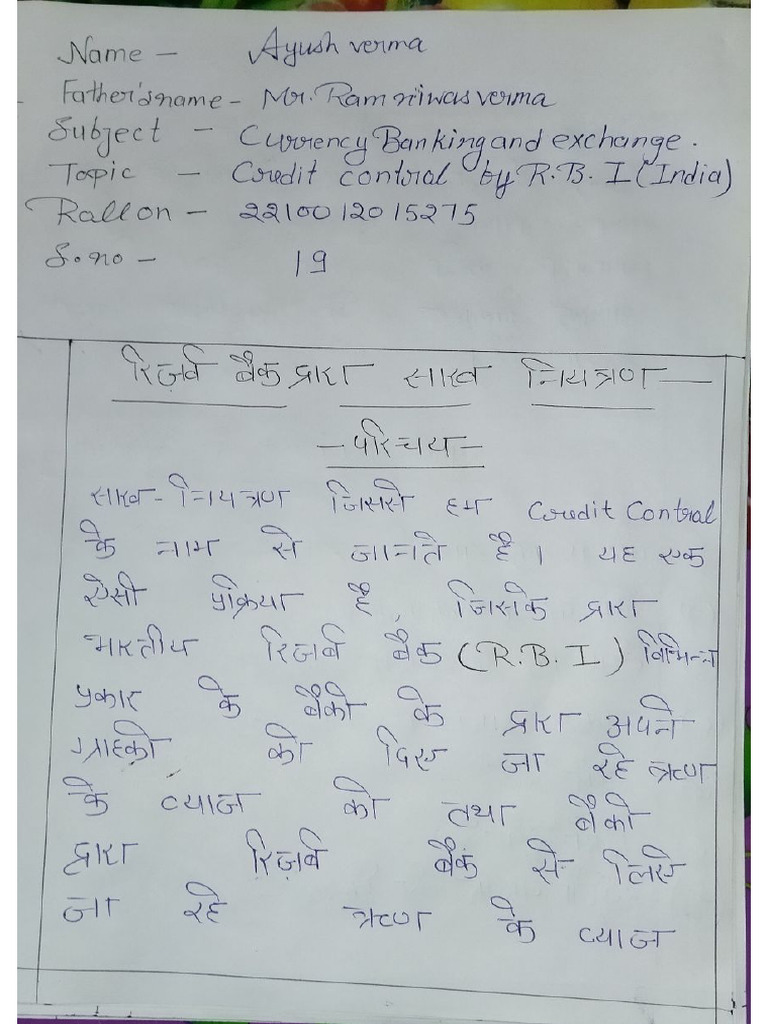 Name - Ayush verma
Father's name - Mr. Ram niwas verma
Subject - Currency Banking and exchange.
Topic - Credit contral by R.B.I (India)
Rall on - 2210012015275
S.no - 19
रिज़र्व बैंक द्वारा साख नियत्रण
- परिचय -
साख-नियत्रण जिससे हम Credit Contral
के नाम से जानते है। यह एक
ऐसी प्रक्रिया है, जिसके द्वारा
भारतीय रिज़र्व बैंक (R.B.I) विभिन्न
प्रकार के बैंको के द्वारा अपने
ग्राहको को दिए जा रहे ऋण
के व्याज को तथा बैंको
द्वारा रिज़र्व बैंक से लिसे
जा रहे ऋण के व्याज